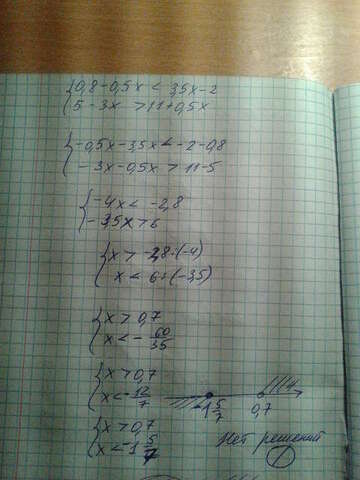 {0,8-0,5x < 3,5x-2
{5-3x > 11+0,5x
{-0,5x-3,5x<-2-0,8
{-3x-0,5x > 11-5
{-4x < -2,8
{-3,5x>6
{x > -2,8:(-4)
{x < 6:(-3,5)
{x > 0,7
{x < - 60/35
{x > 0,7
{x <- 12/7
-1 5/7 0,7
{x > 0,7
{x <-1 5/7
Нет решений